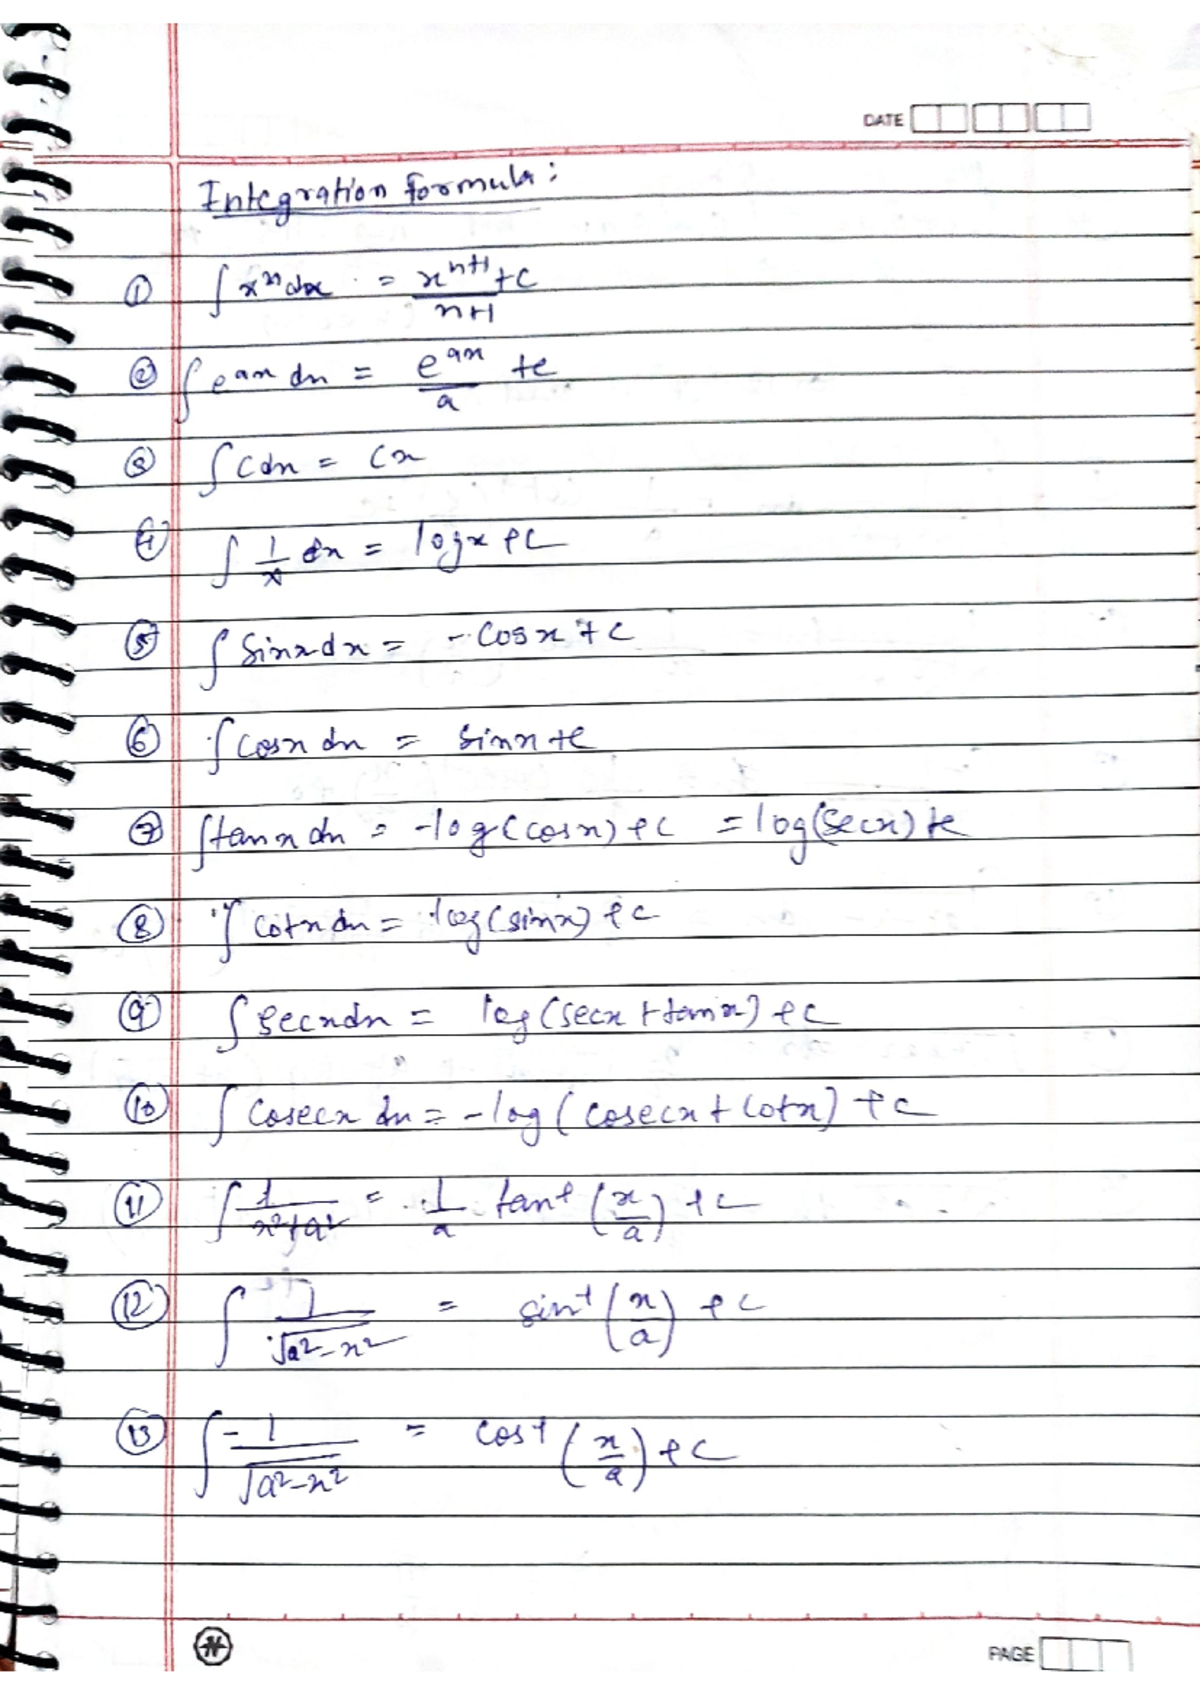 DATE
Integration formula:
① ∫ xⁿ dx = xⁿ⁺¹/n+1 + c
② ∫ e^ax dx = e^ax/a + c
③ ∫ c dx = cx
④ ∫ 1/x dx = log x + c
⑤ ∫ sinx dx = - cosx + c
⑥ ∫ cosx dx = sinx + c
⑦ ∫ tanx dx = -log(cosx) + c = log(secx) + c
⑧ ∫ cotx dx = log(sinx) + c
⑨ ∫ secx dx = log(secx + tanx) + c
⑩ ∫ cosecx dx = -log(cosecx + cotx) + c
⑪ ∫ 1/x²+a² = 1/a tan⁻¹ (x/a) + c
⑫ ∫ 1/√a²-x² = sin⁻¹ (x/a) + c
⑬ ∫ -1/√a²-x² = cos⁻¹ (x/a) + c
N
PAGE